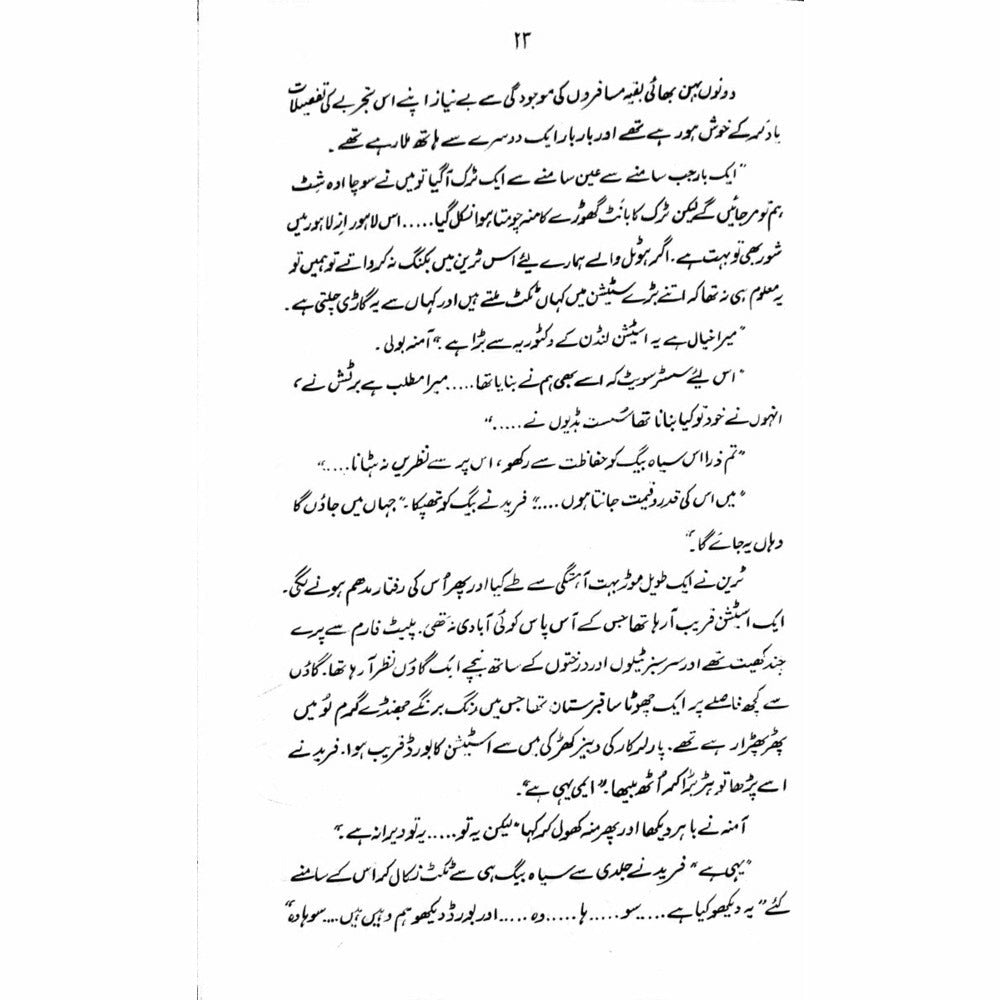 ۲۳
دونوں بہن بھائی بقیہ مسافروں کی موجودگی سے بے نیاز اپنے اس تجربے کی تفصیلات
یاد کر کے خوش ہو رہے تھے اور بار بار ایک دوسرے سے ہاتھ ملا رہے تھے۔
"ایک بار جب سامنے سے عین سامنے سے ایک ٹرک آگیا تو میں نے سوچا اوہ شِٹ
ہم تو مر جائیں گے لیکن ٹرک کا بانٹ گھوڑے کا منہ چومتا ہوا نکل گیا..... اس لاہور اِز لاہور میں
شور بھی تو بہت ہے۔ اگر ہوٹل والے ہمارے لئے اس ٹرین میں بکنگ نہ کرواتے تو ہمیں تو
یہ معلوم ہی نہ تھا کہ اتنے بڑے سٹیشن میں کہاں ٹکٹ ملتے ہیں اور کہاں سے یہ گاڑی چلتی ہے۔
"میرا خیال ہے یہ اسٹیشن لنڈن کے وکٹوریہ سے بڑا ہے۔" آمنہ بولی۔
"اس لئے سسٹر سویٹ کہ اسے بھی ہم نے بنایا تھا..... میرا مطلب ہے برٹش نے،
انہوں نے خود تو کیا بنانا تھا سُست ہڈیوں نے....."
"تم ذرا اس سیاہ بیگ کو حفاظت سے رکھو، اس پر سے نظریں نہ ہٹانا....."
"میں اس کی قدر و قیمت جانتا ہوں....." فرید نے بیگ کو تھپکا۔ "جہاں میں جاؤں گا
وہاں یہ جائے گا۔"
ٹرین نے ایک طویل موڑ بہت آہستگی سے طے کیا اور پھر اُس کی رفتار مدھم ہونے لگی۔
ایک اسٹیشن قریب آ رہا تھا جس کے آس پاس کوئی آبادی نہ تھی۔ پلیٹ فارم سے پرے
چند کھیت تھے اور سرسبز ٹیلوں اور درختوں کے ساتھ نیچے ایک گاؤں نظر آ رہا تھا۔ گاؤں
سے کچھ فاصلے پر ایک چھوٹا سا قبرستان تھا جس میں رنگ برنگے جھنڈے گرم لُو میں
پھڑپھڑا رہے تھے۔ پارلر کار کی دبیز کھڑکی میں سے اسٹیشن کا بورڈ قریب ہوا۔ فرید نے
اسے پڑھا تو ہڑبڑا کر اُٹھ بیٹھا۔ "ایمی یہی ہے"۔
آمنہ نے باہر دیکھا اور پھر منہ کھول کر کہا "لیکن یہ تو..... یہ تو ویرانہ ہے۔"
"یہی ہے" فرید نے جلدی سے سیاہ بیگ ہی سے ٹکٹ نکال کر اس کے سامنے
کئے "یہ دیکھو کیا ہے.....سو.....ہا.....وہ.....اور بورڈ دیکھو ہم وہیں ہیں....سوہاوہ"